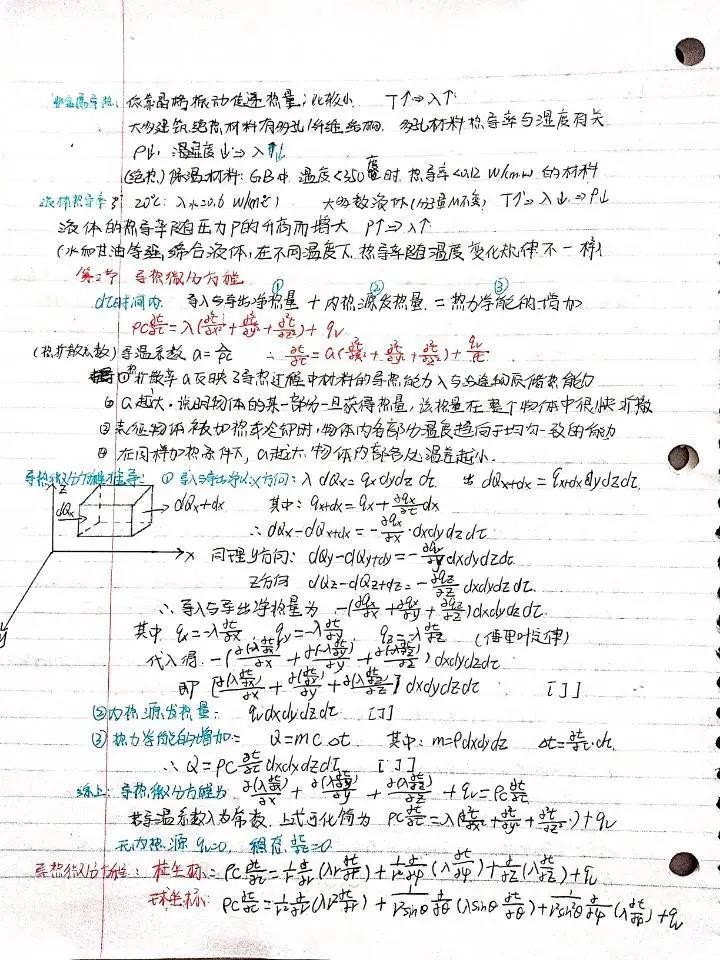 非金属导热: 依靠晶格振动传递热量; 比较小. T↑⇒λ↑
大多建筑绝热材料有多孔/纤维结构. 多孔材料热导率与湿度有关
ρ↓, 湿度↓⇒λ↓
(绝热)保温材料: GB中, 温度<350度时, 热导率<0.12 W/(m·w) 的材料
液体热导率: 20℃: λ水=0.6 W/(m℃) 大多数液体(分子量M不变) T↑⇒λ↓⇒ρ↓
液体的热导率随压力P的升高而增大 P↑⇒λ↑
(水和甘油等强缔合液体, 在不同温度下, 热导率随温度变化规律不一样)
第二节 导热微分方程
① ② ③
dτ时间内: 导入与导出净热量 + 内热源发热量 = 热力学能的增加
ρC∂t/∂τ=λ(∂²t/∂x²+∂²t/∂y²+∂²t/∂z²)+qv
(热扩散系数)导温系数 a=λ/ρc ∴ ∂t/∂τ=a(∂²t/∂x²+∂²t/∂y²+∂²t/∂z²)+qv/ρc
①热扩散率a反映了导热过程中材料的导热能力λ与沿途物质储热能力
② a越大, 说明物体的某一部分一旦获得热量, 该热量在整个物体中很快扩散
③表征物体被加热或冷却时, 物体内各部分温度趋向于均匀一致的能力
④ 在同样加热条件下, a越大, 物体内部各处温差越小.
导热微分方程推导: ① 导入与导出净热: x方向: 入 dQx=qxdydz dτ. 出 dQx+dx=qx+dx dydzdτ.
z dQx dQx+dx x y 其中: qx+dx=qx+∂qx/∂x dx
∴dQx-dQx+dx=-∂qx/∂x·dxdydzdτ
同理y方向: dQy-dQy+dy=-∂qy/∂y dxdydzdτ
z方向 dQz-dQz+dz=-∂qz/∂z dxdydzdτ.
∴导入与导出净热量为 -(∂qx/∂x+∂qy/∂y+∂qz/∂z)dxdydzdτ.
其中 qx=-λ∂t/∂x, qy=-λ∂t/∂y, qz=-λ∂t/∂z (傅里叶定律)
代入得. -(∂(-λ∂t/∂x)/∂x+∂(-λ∂t/∂y)/∂y+∂(-λ∂t/∂z)/∂z)dxdydzdτ
即 [∂(λ∂t/∂x)/∂x+∂(λ∂t/∂y)/∂y+∂(λ∂t/∂z)/∂z]dxdydzdτ [J]
②内热源发热量: qvdxdydzdτ [J]
③ 热力学能的增加: Q=mc△t 其中: m=ρdxdydz △t=∂t/∂τ·dτ.
∴ Q=ρC∂t/∂τdxdydzdτ [J]
综上: 导热微分方程为 ∂(λ∂t/∂x)/∂x+∂(λ∂t/∂y)/∂y+∂(λ∂t/∂z)/∂z+qv=ρC∂t/∂τ
若导温系数λ为常数, 上式可化简为 ρC∂t/∂τ=λ(∂²t/∂x²+∂²t/∂y²+∂²t/∂z²)+qv
无内热源 qv=0, 稳态 ∂t/∂τ=0.
导热微分方程: 柱坐标: ρC∂t/∂τ=1/r ∂/∂r(λr∂t/∂r)+1/r² ∂/∂φ(λ∂t/∂φ)+∂/∂z(λ∂t/∂z)+qv
球坐标: ρC∂t/∂τ=1/r² ∂/∂r(λr²∂t/∂r)+1/r²sinθ ∂/∂θ(λsinθ ∂t/∂θ)+1/r²sin²θ ∂/∂φ(λ∂t/∂φ)+qv